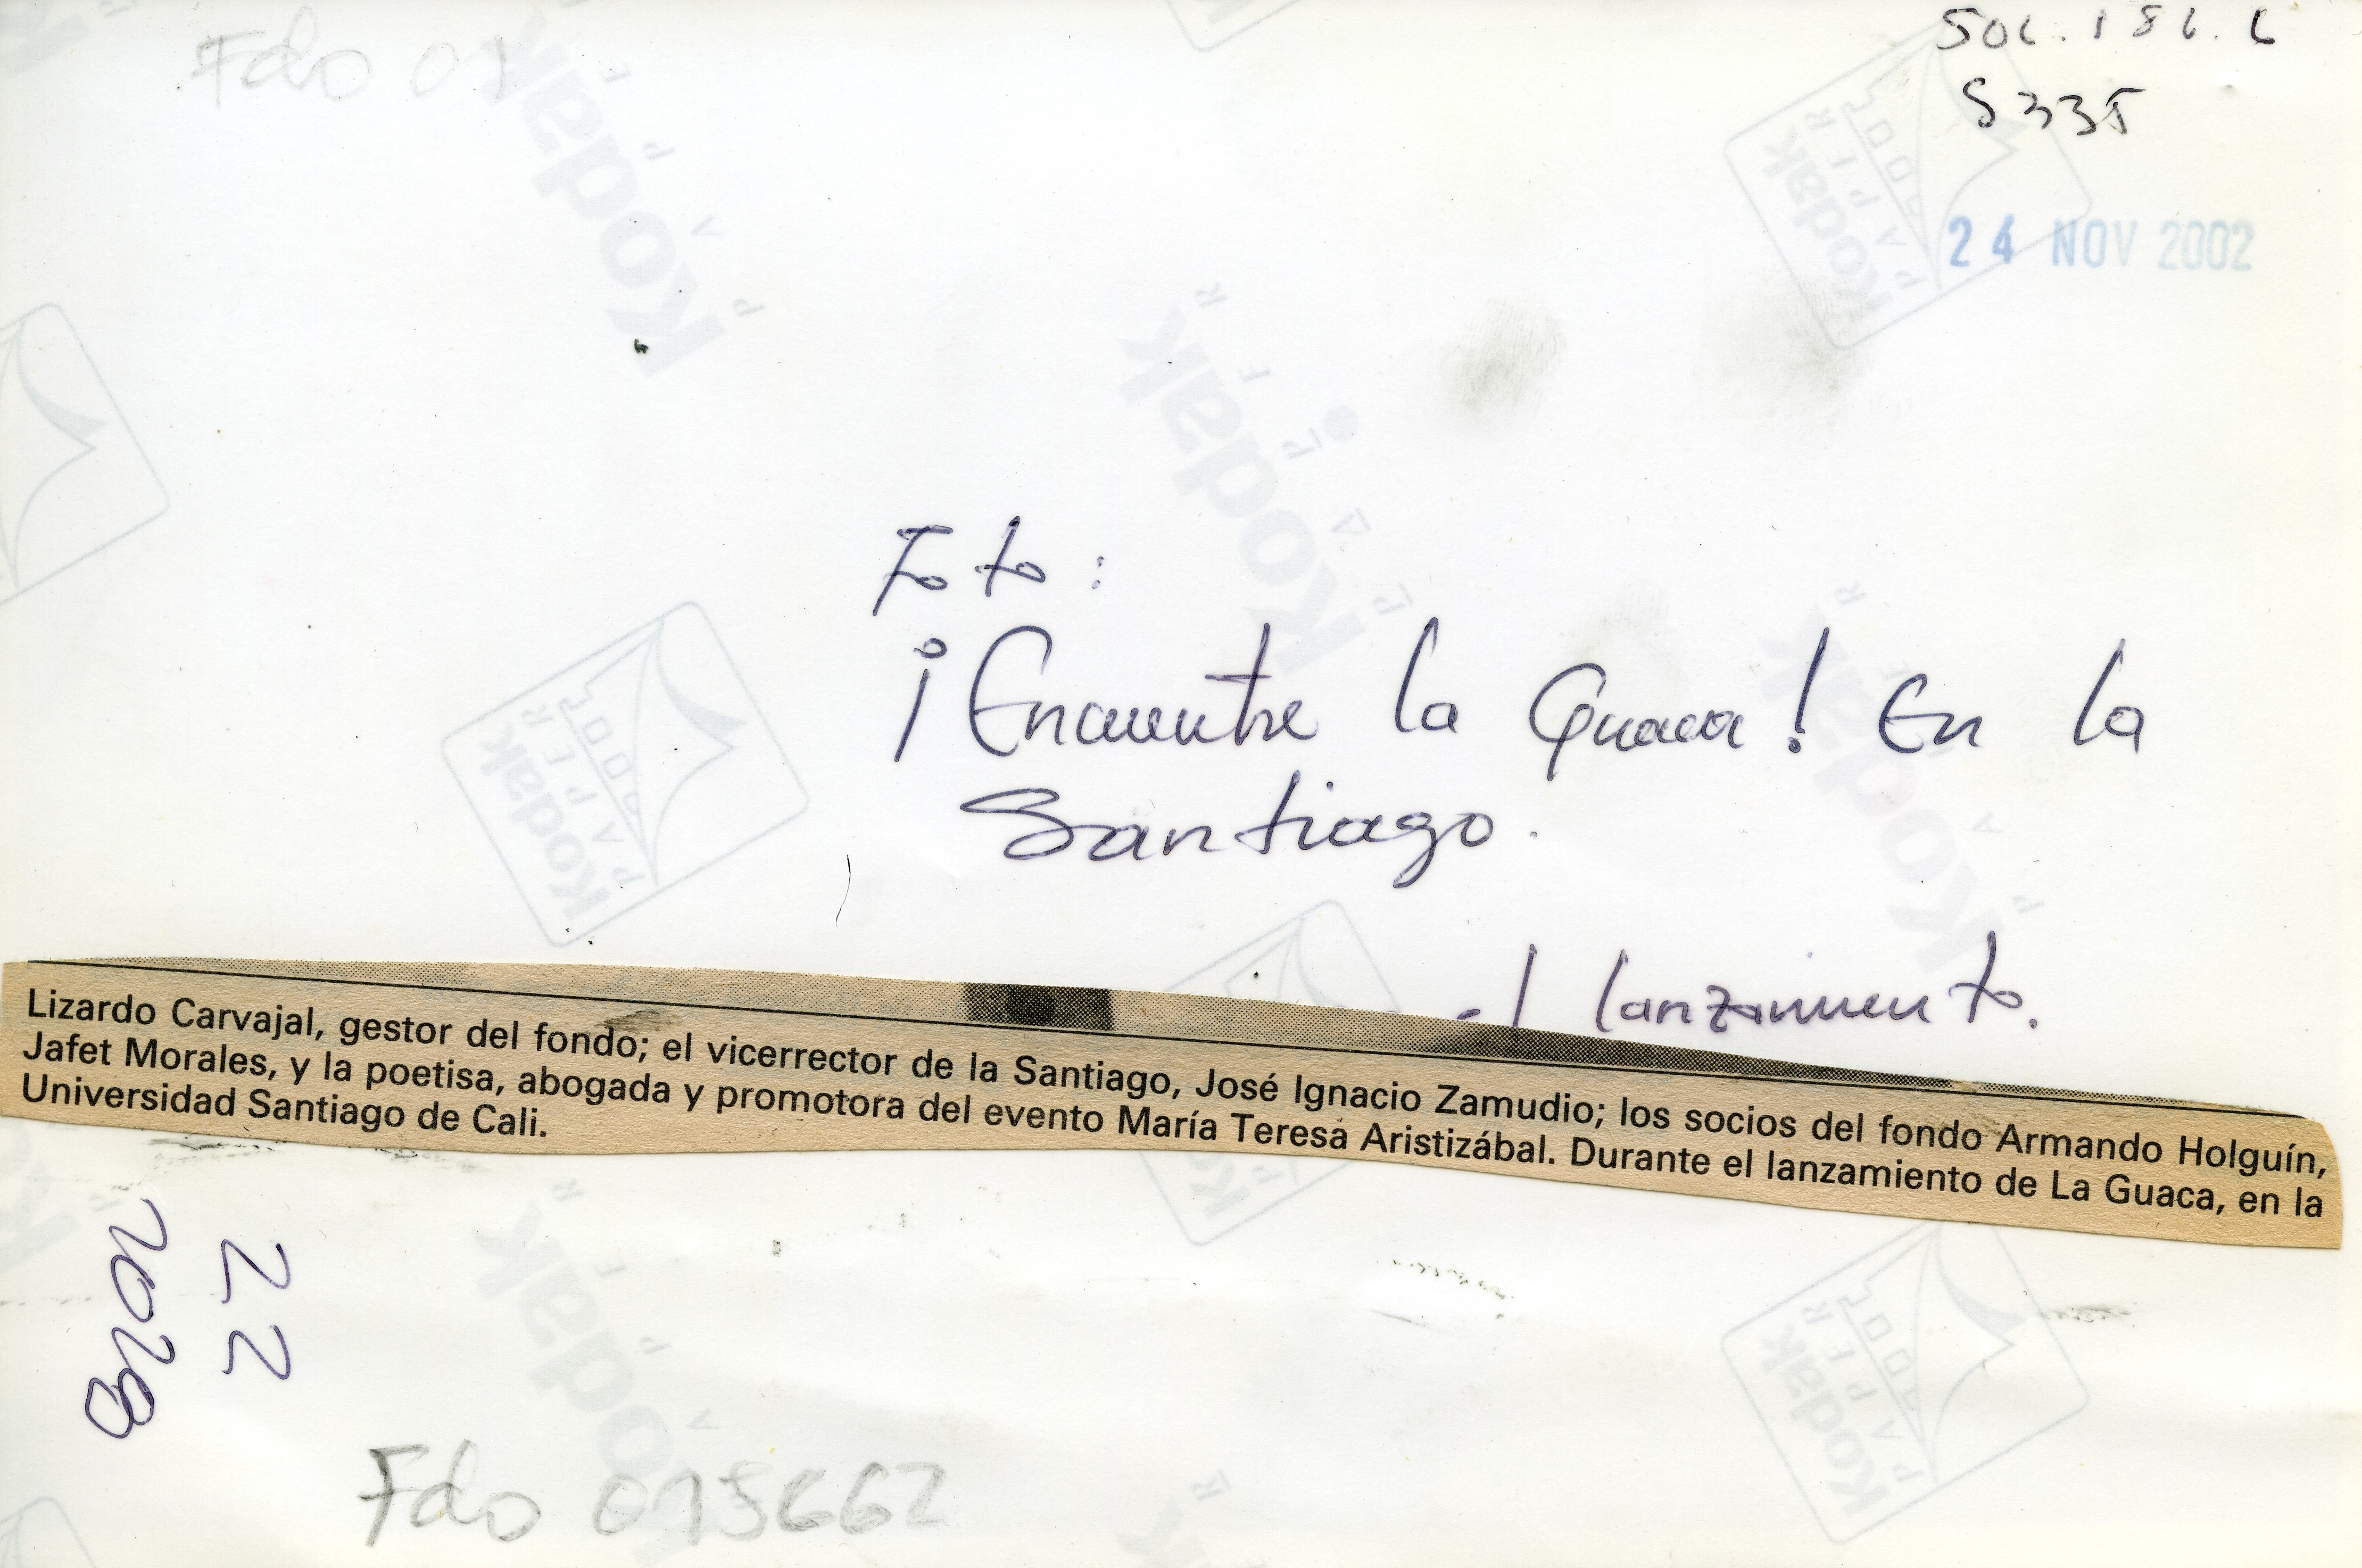 Fdo 01
Soc. 186. L
S335
24 NOV 2002
Foto:
¡Encuentre la Guaca! En la
Santiago.
el lanzamiento.
Lizardo Carvajal, gestor del fondo; el vicerrector de la Santiago, José Ignacio Zamudio; los socios del fondo Armando Holguín,
Jafet Morales, y la poetisa, abogada y promotora del evento María Teresa Aristizábal. Durante el lanzamiento de La Guaca, en la
Universidad Santiago de Cali.
22
2028
Fdo 015662
Kodak
PAPER